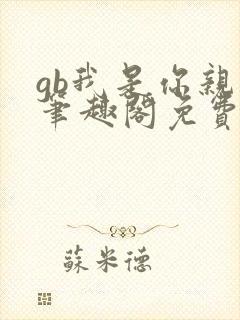 gb我是你親
筆趣閣免費
蘇米德